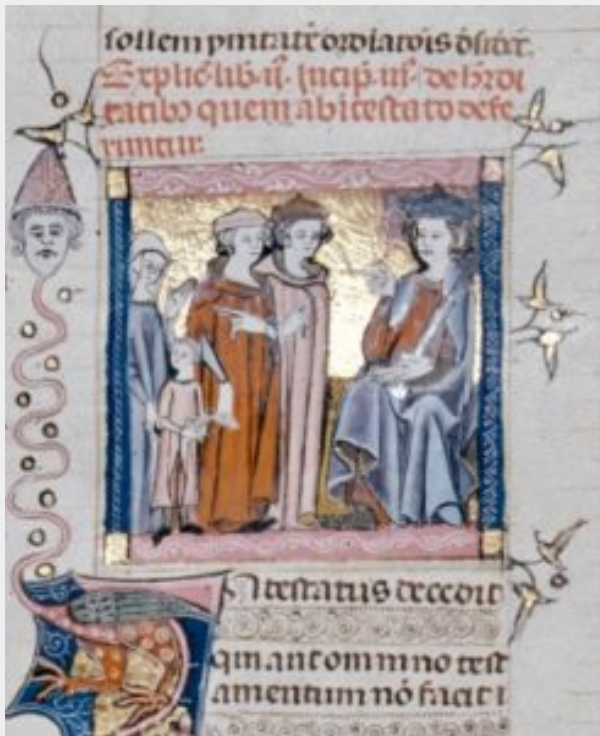 sollempnitatē ordīatōis dsīter.
Explic̄ lib̄. ij. Incip̄. iij. de h̄rdi
tatibꝰ quem ab ītestato defe
runtur
Ntestatus decedit
qui aut omnino test
amentum nō facit ī